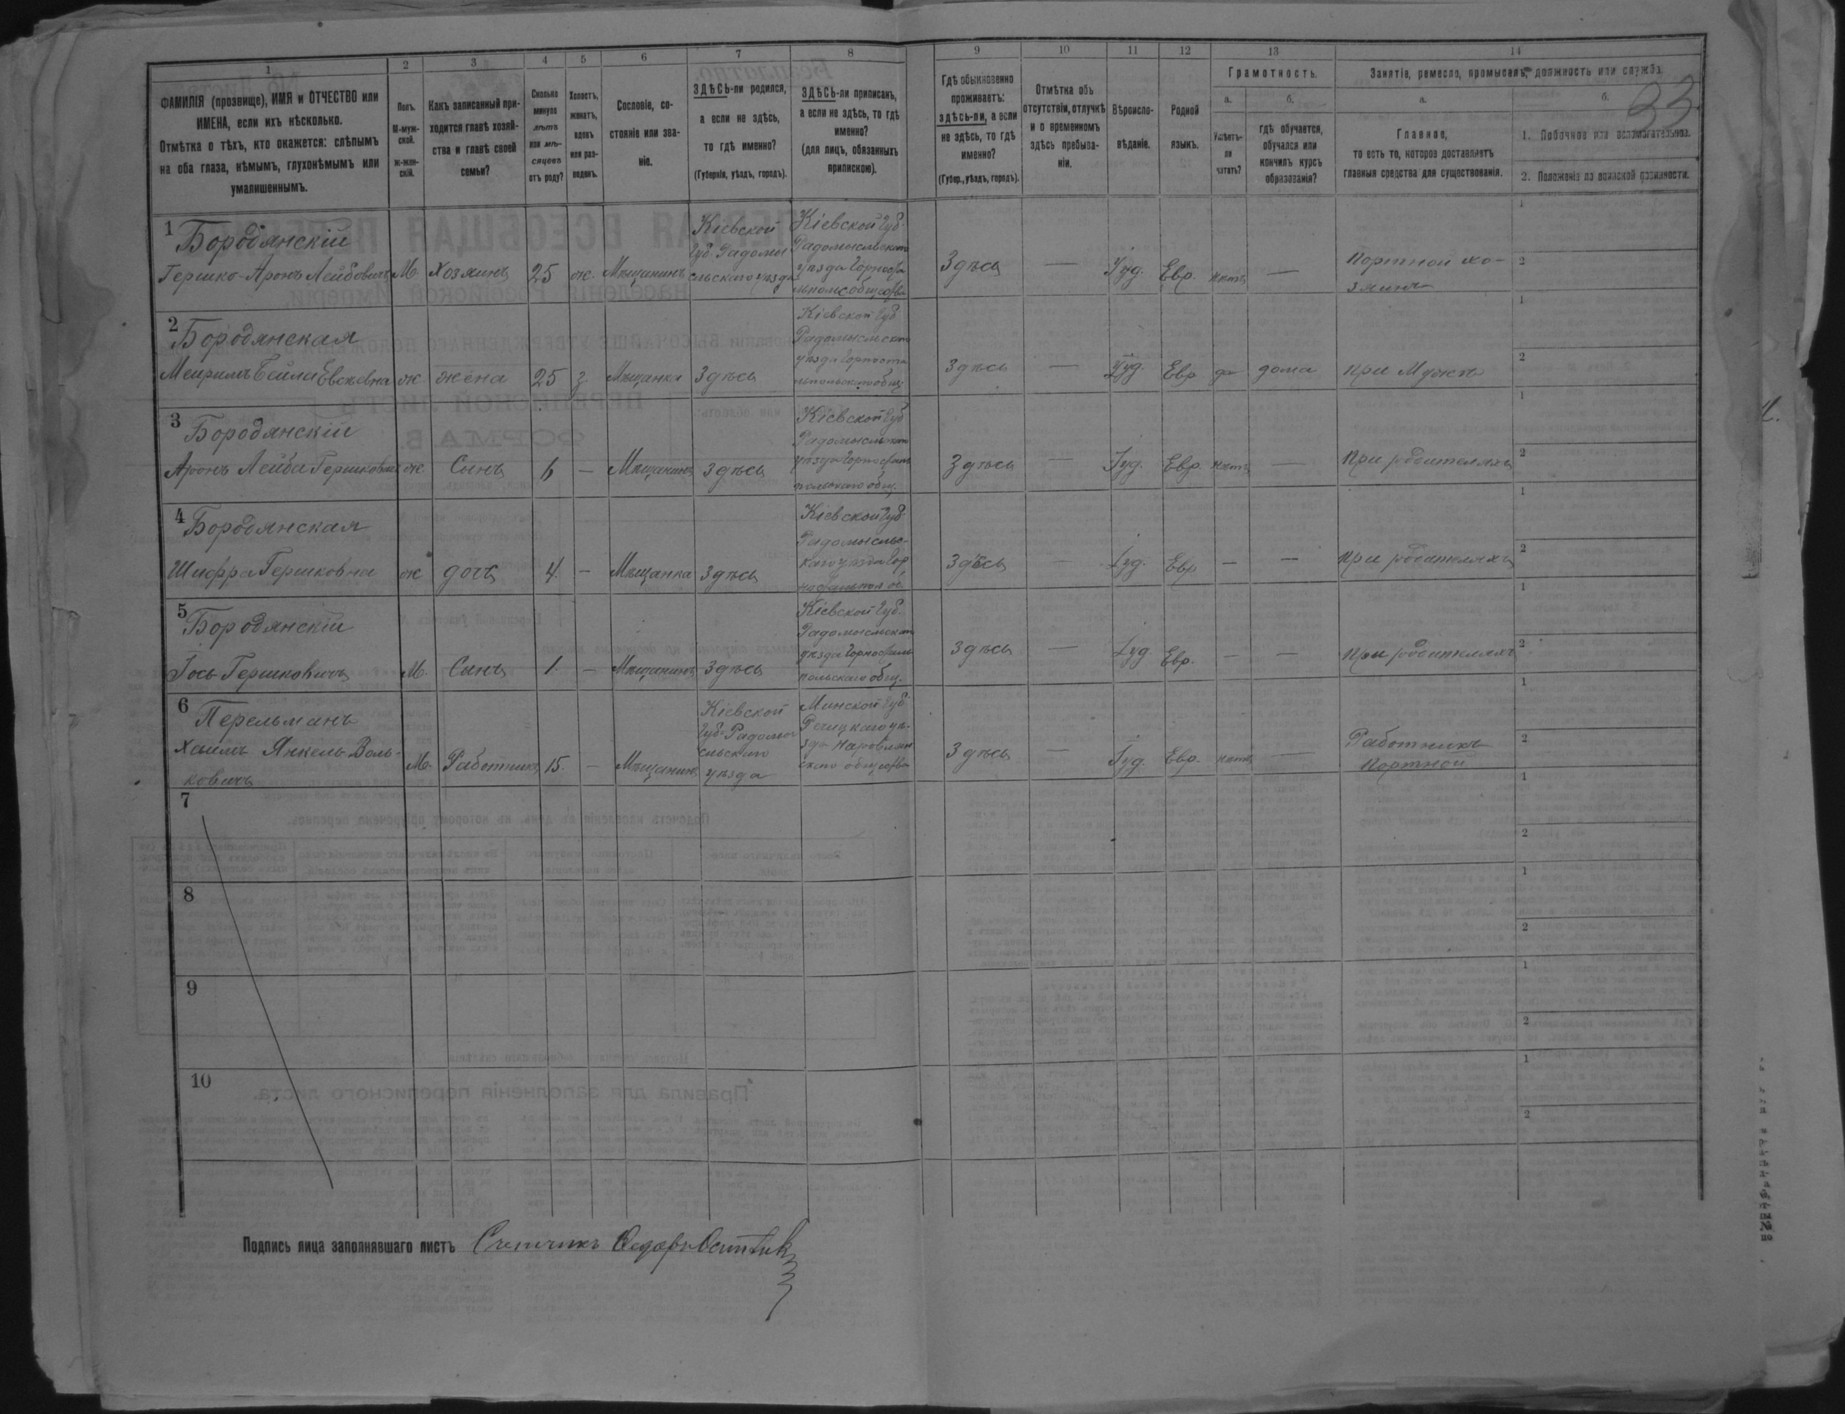 33
1 2 3 4 5 6 7 8 9 10 11 12 13 14
ФАМИЛІЯ (прозвище), ИМЯ и ОТЧЕСТВО или
ИМЕНА, если ихъ нѣсколько.
Отмѣтка о тѣхъ, кто окажется: слѣпымъ
на оба глаза, нѣмымъ, глухонѣмымъ или
умалишеннымъ.
Полъ.
М-муж-
ской.
Ж-жен-
скій.
Какъ записанный при-
ходится главѣ хозяй-
ства и главѣ своей
семьи?
Сколько
минуло
лѣтъ
или мѣ-
сяцевъ
отъ роду?
Холостъ,
женатъ,
вдовъ
или раз-
веденъ.
Сословіе, со-
стояніе или зва-
ніе.
ЗДѢСЬ-ли родился,
а если не здѣсь,
то гдѣ именно?
(Губернія, уѣздъ, городъ).
ЗДѢСЬ-ли приписанъ,
а если не здѣсь, то гдѣ
именно?
(для лицъ, обязанныхъ
припискою).
Гдѣ обыкновенно
проживаетъ:
здѣсь-ли, а если
не здѣсь, то гдѣ
именно?
(Губер., уѣздъ, городъ).
Отмѣтка объ
отсутствіи, отлучкѣ
и о временномъ
здѣсь пребыва-
ніи.
Вѣроиспо-
вѣданіе.
Родной
языкъ.
Грамотность.
а.
Умѣетъ-
ли
читать?
б.
гдѣ обучается,
обучался или
кончилъ курсъ
образованія?
Занятіе, ремесло, промыселъ, должность или служба.
а.
Главное,
то есть то, которое доставляетъ
главныя средства для существованія.
б.
1. Побочное или вспомогательное.
2. Положеніе по воинской повинности.
1 Бородянскій
Гершко-Аронъ Лейбовичъ М. Хозяинъ 25 ж. Мѣщанинъ
Кіевской
Губ. Радомы
сльскаго уѣзда
Кіевской Губ.
Радомысльскаго
уѣзда
Здѣсь — Іуд. Евр. нѣтъ —
Портной хо-
зяинъ
2 Бородянская
Бейла ж жена 25 з Мѣщанка Здѣсь
Кіевской Губ
Радомысльскаго
уѣзда
Здѣсь — Іуд. Евр да дома при Мужѣ
3 Бородянскій
Аронъ Лейба Гершковичъ ж. Сынъ 6 — Мѣщанинъ здѣсь
Кіевской Губ
уѣзда
Здѣсь — Іуд. Евр. нѣтъ — При родителяхъ
4 Бородянская
Шифра Гершковна ж дочь 4. — Мѣщанка здѣсь
Кіевской Губ
Радомысльс-
каго уѣзда
Здѣсь — Іуд. Евр — — при родителяхъ
5 Бородянскій
Гершковичъ М. Сынъ 1. — Мѣщанинъ здѣсь
Кіевской Губ.
уѣзда
польскаго общ.
Здѣсь — Іуд Евр. — — При родителяхъ
6 Перельманъ
Хаимъ Янкель Воль-
ковичъ М. Работникъ 15. — Мѣщанинъ
Кіевской
Губ. Радомы
сльскаго
уѣзда
Минской Губ
Рѣчицкаго уѣ-
зда Наровлян
скаго общества
Здѣсь — Іуд. Евр. нѣтъ —
Работникъ
Портной
7
8
9
10
Подпись лица заполнявшаго листъ Счетчикъ Федоръ